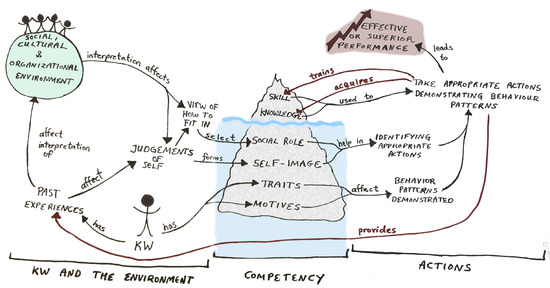 SOCIAL,
CULTURAL
&
ORGANIZATIONAL
ENVIRONMENT
interpretation affects
VIEW OF
HOW TO
FIT IN
JUDGEMENTS
OF
SELF
affect
interpretation
of
affect
PAST
EXPERIENCES
has
KW
has
select
forms
SKILL
KNOWLEDGE
SOCIAL ROLE
SELF-IMAGE
TRAITS
MOTIVES
trains
acquires
used to
help in
affect
provides
EFFECTIVE
OR SUPERIOR
PERFORMANCE
leads
to
TAKE APPROPRIATE ACTIONS
DEMONSTRATING BEHAVIOUR
PATTERNS
IDENTIFYING
APPROPRIATE
ACTIONS
BEHAVIOR
PATTERNS
DEMONSTRATED
KW AND THE ENVIRONMENT
COMPETENCY
ACTIONS